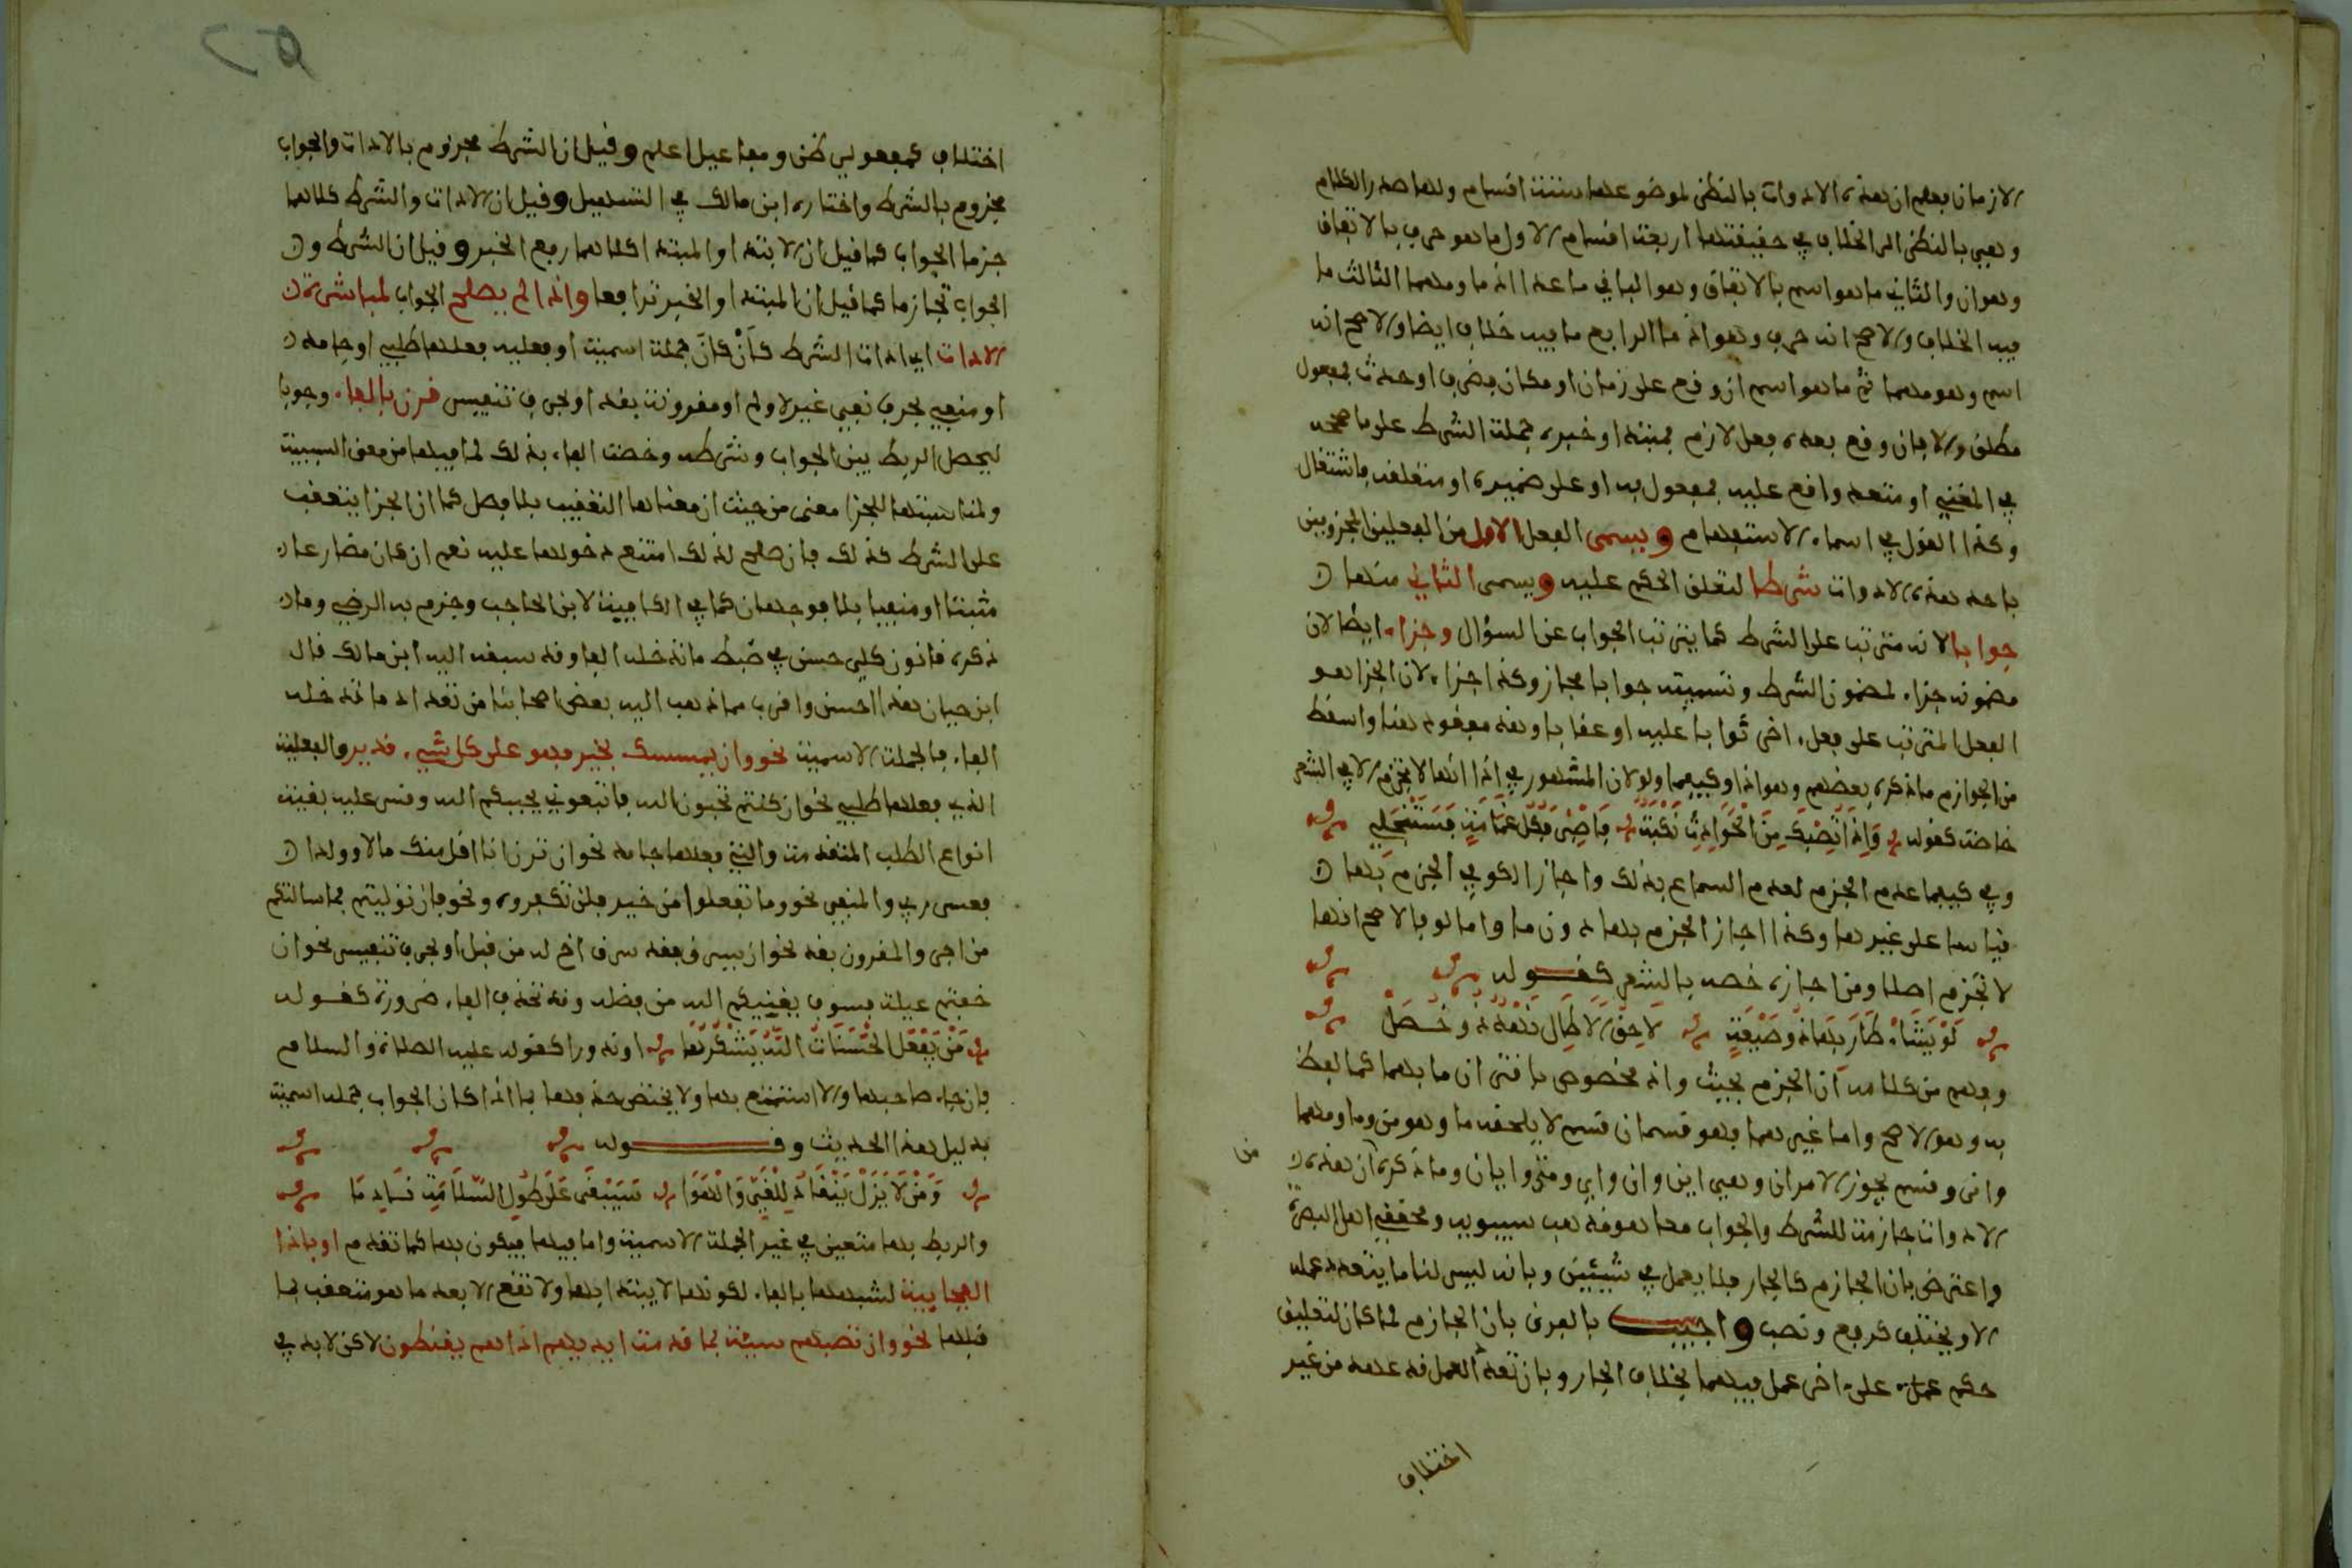 الازمان فعلم ان هذه الادوات بالنظر لموضوعها ستة اقسام ولها صدر الكلام
وهي بالنظر الى الخلاف في حقيقتها اربعة اقسام الاول ما هو حرف بالاتفاق
وهو ان والثاني ما هو اسم بالاتفاق وهو الباقي ما عدا اذ ما ومهما الثالث ما
فيه الخلاف والاصح انه حرف وهو اذ ما الرابع ما فيه خلاف ايضا والاصح انه
اسم وهو مهما ثم ما هو اسم ان وقع على زمان او مكان فظرف او حدث فمفعول
مطلق والا فان وقع بعده فعل لازم فمبتدا وخبره جملة الشرط على ما صححه
في المغني او متعد واقع عليه فمفعول به او على ضميره او متعلقه فاشتغال
وكذا القول في اسماء الاستفهام ويسمى الفعل الاول من الفعلين المجزومين
باحد هذه الادوات شرطا لتعلق الحكم عليه ويسمى الثاني منهما
جوابا لانه مترتب على الشرط كما يترتب الجواب عن السؤال وجزاء ايضا لان
مضمونه جزاء لمضمون الشرط وتسميته جوابا مجاز وكذا جزاء لان الجزا هو
الفعل المترتب على فعل اخر ثوابا عليه او عقابا وهذا مفقود هنا واسقط
من الجوازم ما ذكره بعضهم وهو اذا وكيفما ولو لان المشهور في اذا انها لا تجزم الا في الشعر
خاصة كقوله وَإِذَا تُصِبْكَ مِنَ الْحَوَادِثِ نَكْبَةٌ فَاصْبِرْ فَكُلُّ غَمَامَةٍ فَسَتَنْجَلِي
وفي كيفما عدم الجزم لعدم السماع بذلك واجاز الكوفي الجزم بها
قياسا على غيرها وكذا اجاز الجزم بها دون ما واما لو فالاصح انها
لا تجزم اصلا ومن اجازه خصه بالشعر كقوله
لَوْ يَشَأْ طَارَ بِهَا ذُو مَيْعَةٍ لَاحِقُ الْآطَالِ نَهْدٌ ذُو خُصَلْ
وفهم من كلامه ان الجزم بحيث واذ مخصوص باقتران ما بهما كما لفظ
به وهو الاصح واما غيرهما فهو قسمان قسم لا يلحقه ما وهو من وما ومهما
وانى وقسم يجوز الامران وهي اين وان واي ومتى وايان وما ذكره من ان هذه
الادوات جازمة للشرط والجواب معا هو مذهب سيبويه ومحققي اهل البصرة
واعترض بان الجازم كالجار فلا يعمل في شيئين وبانه ليس لنا ما يتعدد عمله
الا ويختلف كرفع ونصب واجيب بالفرق بان الجازم لما كان لتعليق
حكم عمله على اخر عمل فيهما بخلاف الجار وبان تعدد العمل قد عهد من غير
اختلاف
اختلاف كمفعولي ظن ومفاعيل اعلم وقيل ان الشرط مجزوم بالادات والجواب
مجزوم بالشرط واختاره ابن مالك في التسهيل وقيل ان الادات والشرط كلاهما
جزما الجواب كما قيل ان الابتدا والمبتدا كلاهما رفع الخبر وقيل ان الشرط و
الجواب تجازما كما قيل ان المبتدا والخبر ترافعا واذا لم يصلح الجواب لمباشرة
الادات اي ادات الشرط كأن كان جملة اسمية او فعليه فعلها طلبي او جامد
او منفي بحرف نفي غير لا ولم او مقرونة بقد او بحرف تنفيس قرن بالفاء وجوبا
ليحصل الربط بين الجواب وشرطه وخصت الفاء بذلك لما فيها من معنى السببية
ولمناسبتها للجزا معنى من حيث ان معناها التعقيب بلا فصل كما ان الجزا يتعقب
على الشرط كذلك فان صلح لذلك امتنع دخولها عليه نعم ان كان مضارعا
مثبتا او منفيا بلا فوجهان كما في الكافية لابن الحاجب وجزم به الرضي وما
ذكره قانون كلي حسن في ضبط ما تدخله الفاء وقد سبقه اليه ابن مالك قال
ابن حيان هذا احسن واقرب مما ذهب اليه بعض اصحابنا من تعداد ما تدخله
الفاء فالجملة الاسمية نحو وان يمسسك بخير فهو على كل شيء قدير والفعلية
التي فعلها طلبي نحو ان كنتم تحبون الله فاتبعوني يحببكم الله وقس عليه بقية
انواع الطلب المتقدمة والتي فعلها جامد نحو ان ترن انا اقل منك مالا وولدا
فعسى ربي والمنفي نحو وما تفعلوا من خير فلن تكفروه ونحو فان توليتم فما سالتكم
من اجر والمقرون بقد نحو ان يسرق فقد سرق اخ له من قبل او بحرف تنفيس نحو ان
خفتم عيلة فسوف يغنيكم الله من فضله وقد تحذف الفاء ضرورة كقوله
مَنْ يَفْعَلِ الْحَسَنَاتِ اللَّهُ يَشْكُرُهَا او ندورا كقوله عليه الصلاة والسلام
فان جاء صاحبها والا استمتع بها ولا يختص حذفها بما اذا كان الجواب جمله اسمية
بدليل هذا الحديث وقوله
وَمَنْ لَا يَزَلْ يَنْقَادُ لِلْغَيِّ وَالْهَوَا سَيَبْقَى عَلَى طُولِ السَّلَامَةِ نَادِمَا
والربط بها متعين في غير الجملة الاسمية واما فيها فيكون بها كما تقدم او باذا
الفجايية لشبهها بالفاء لكونها لا يبتدا بها ولا تقع الا بعد ما هو متعقب بما
قبلها نحو وان تصبهم سيئة بما قدمت ايديهم اذا هم يقنطون لاكن لا بد في